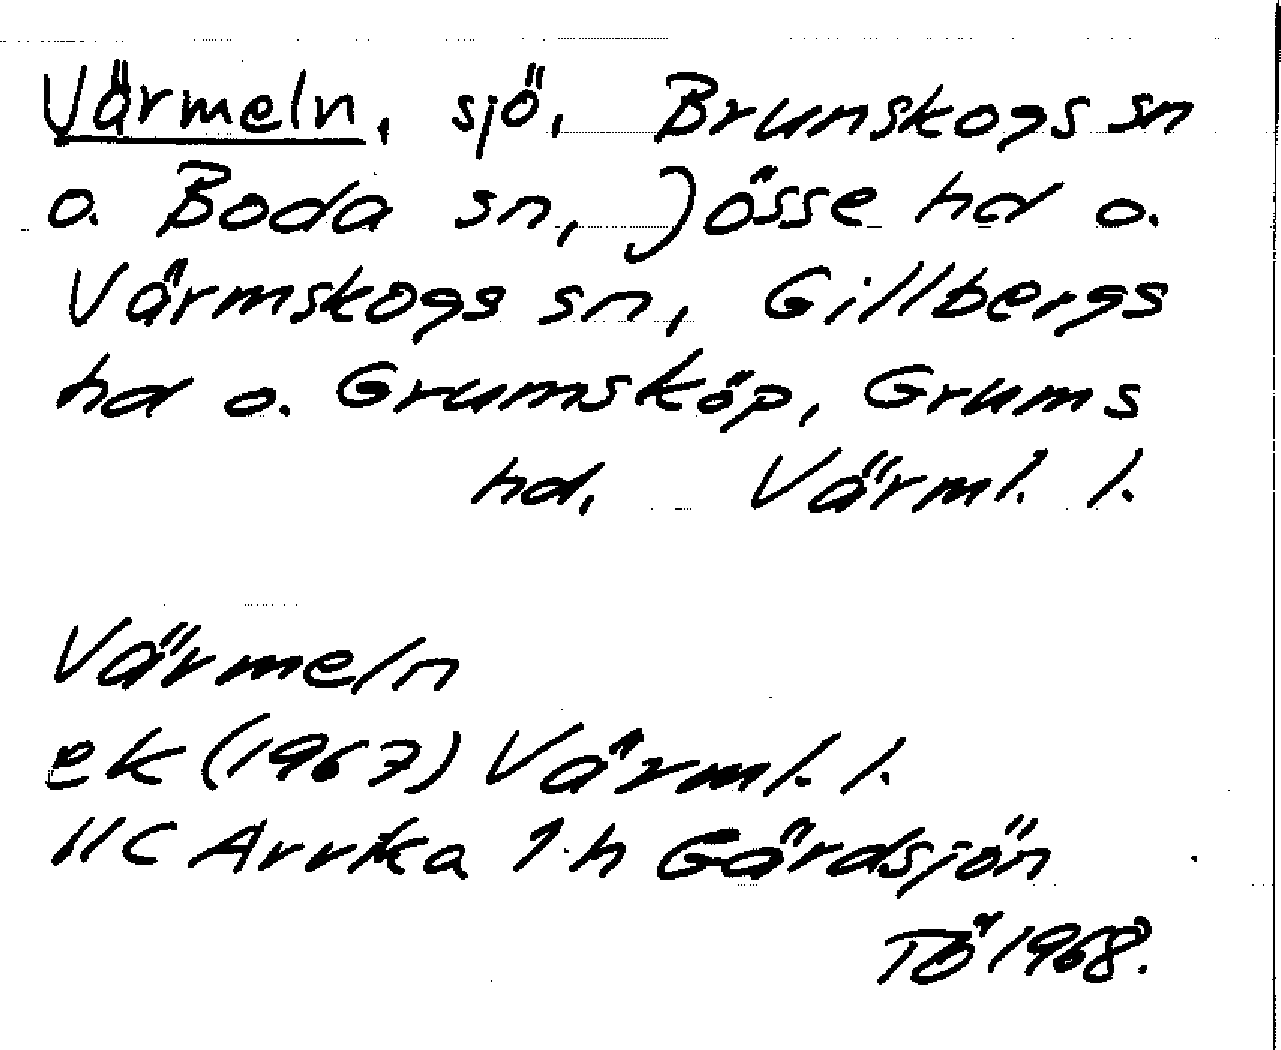 Värmeln, sjö, Brunskogs sn
o. Boda sn, Jösse hd o.
Värmskogs sn, Gillbergs
hd o. Grums köp, Grums
hd, Värml. l.
Värmeln
ek (1967) Värml. l.
11C Arvika 1 h Gårdsjön
TÖ 1968.